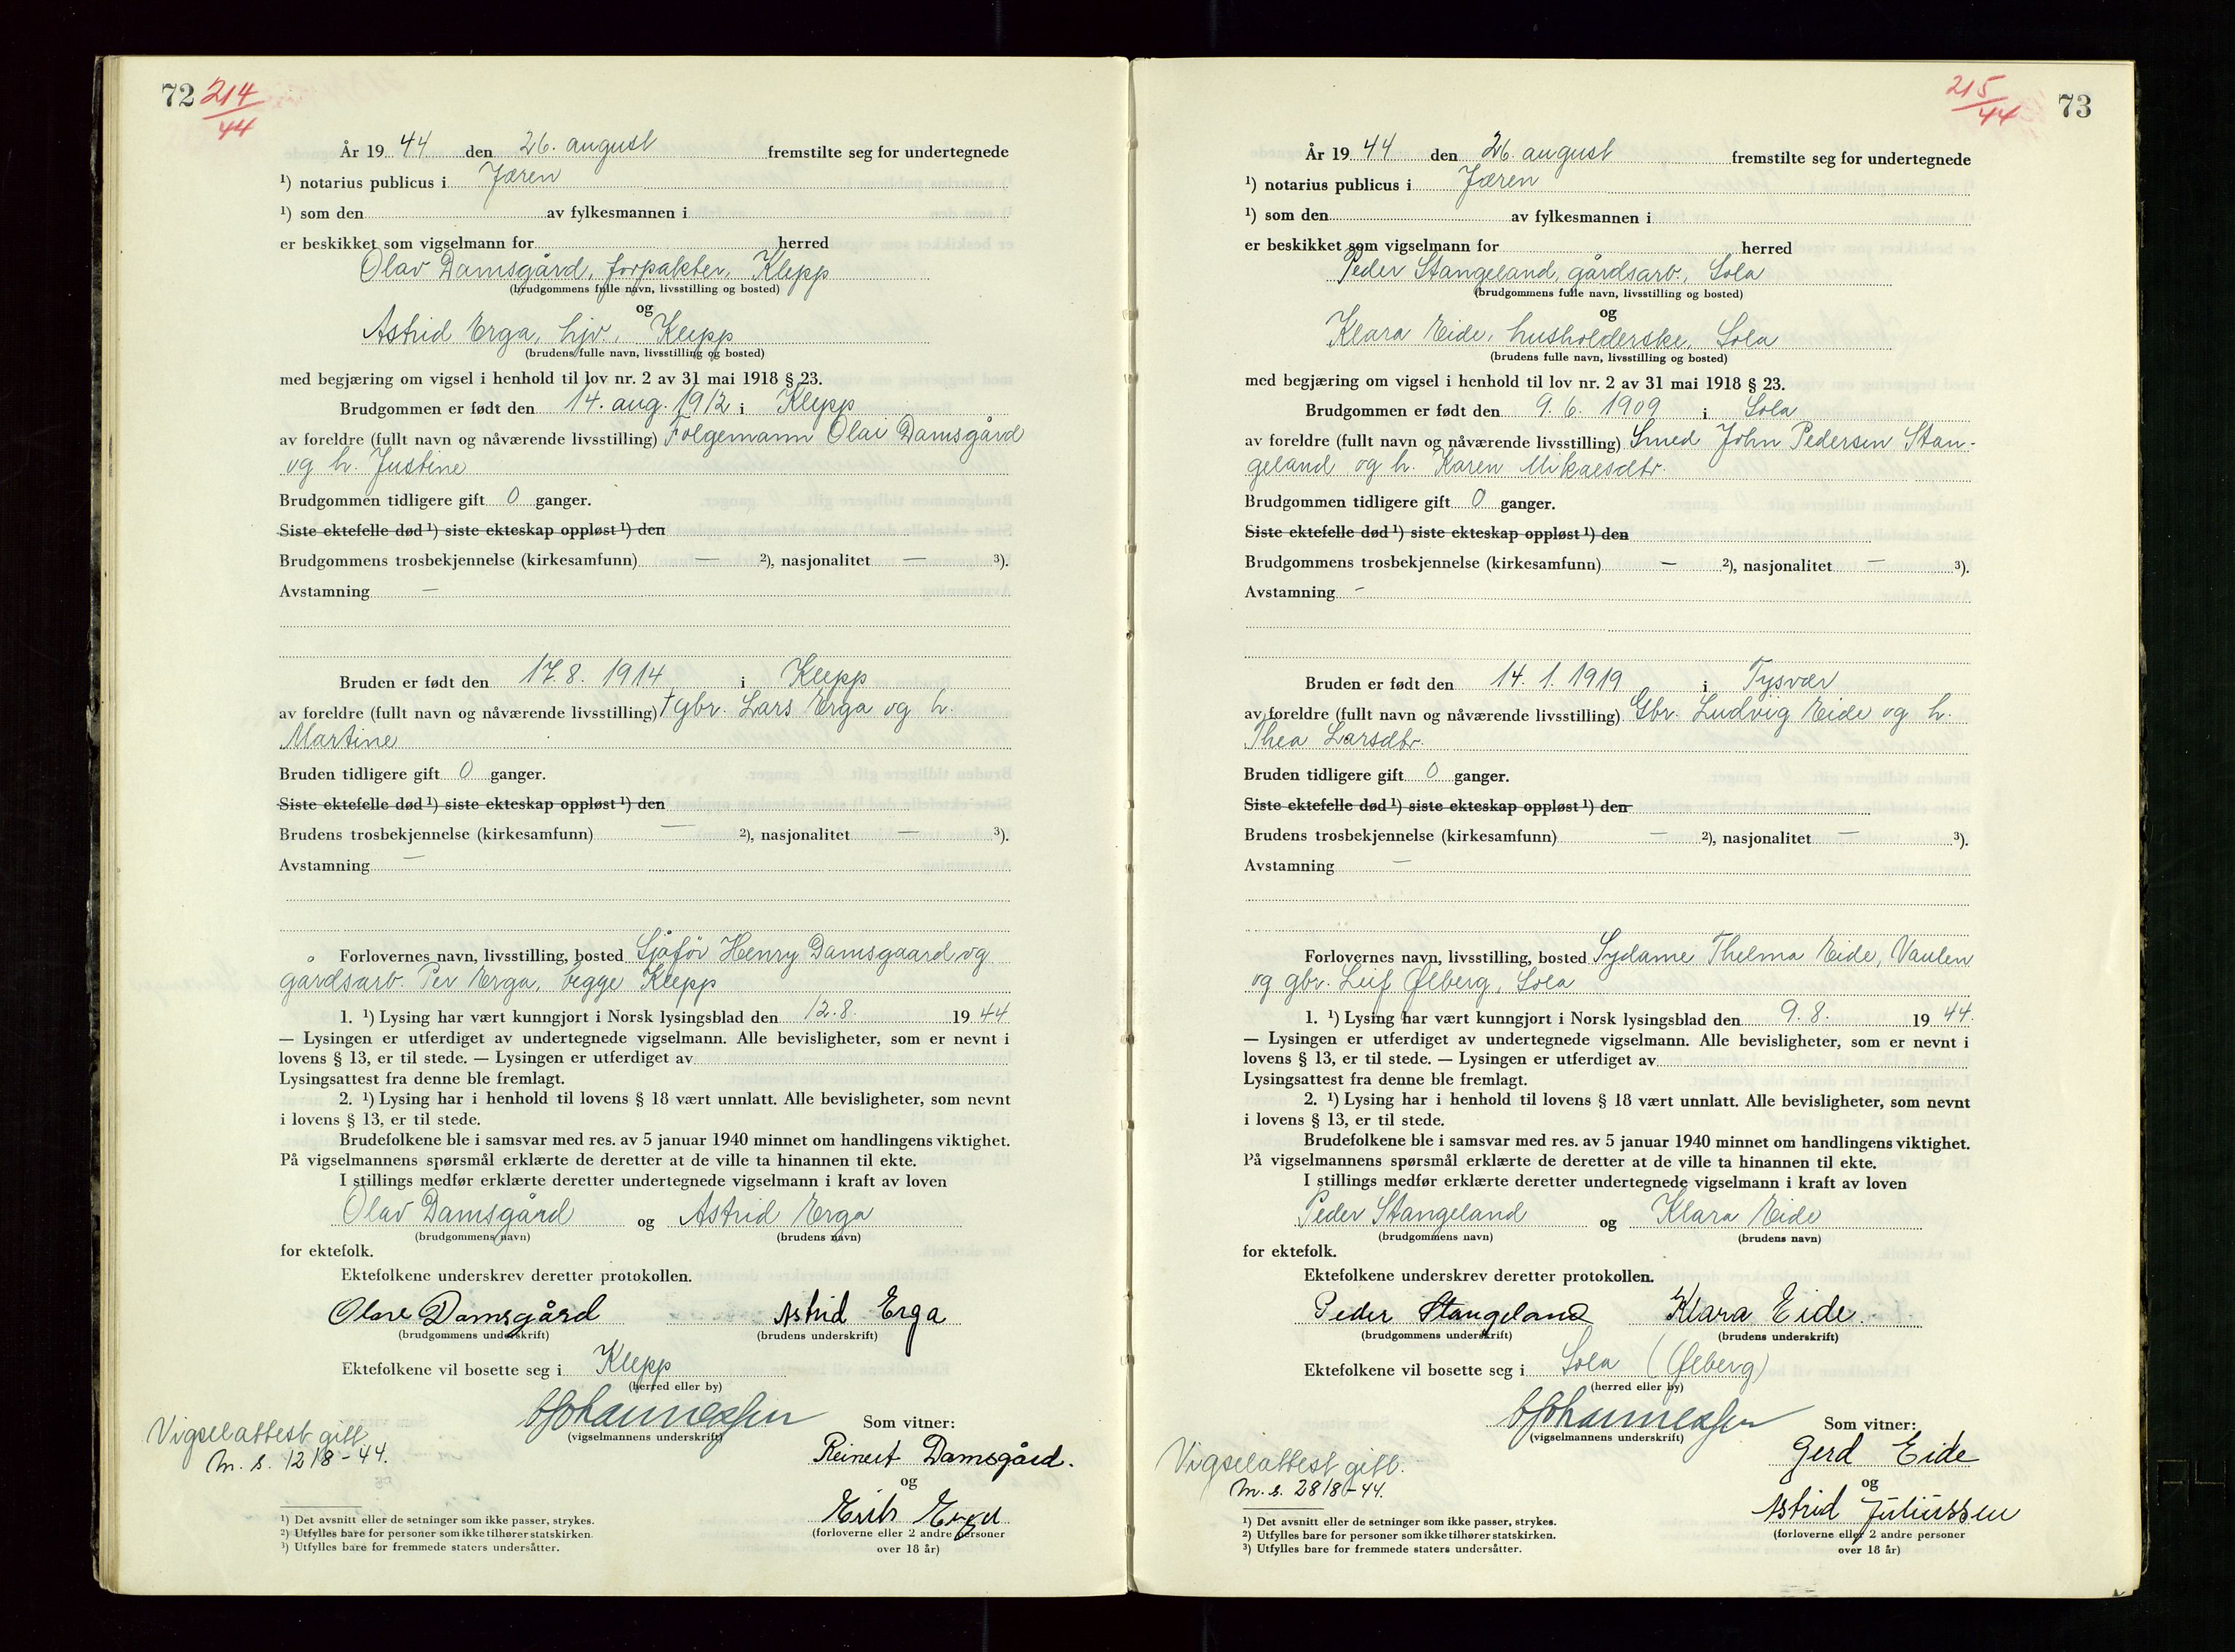 72 214/44
År 19 44 den 26. august fremstilte seg for undertegnede
¹) notarius publicus i Jæren
¹) som den av fylkesmannen i
er beskikket som vigselmann for herred
Olav Damsgård, forpakter, Klepp
(brudgommens fulle navn, livsstilling og bosted)
og
Astrid Erga, hjv., Klepp
(brudens fulle navn, livsstilling og bosted)
med begjæring om vigsel i henhold til lov nr. 2 av 31 mai 1918 § 23.
Brudgommen er født den 14. aug. 1912 i Klepp
av foreldre (fullt navn og nåværende livsstilling) Folgemann Olai Damsgård
og h. Justine
Brudgommen tidligere gift 0 ganger.
Siste ektefelle død ¹) siste ekteskap oppløst ¹) den
Brudgommens trosbekjennelse (kirkesamfunn) — ²), nasjonalitet — ³).
Avstamning —
Bruden er født den 17.8. 1914 i Klepp
av foreldre (fullt navn og nåværende livsstilling) † gbr. Lars Erga og h.
Martine
Bruden tidligere gift 0 ganger.
Siste ektefelle død ¹) siste ekteskap oppløst ¹) den
Brudens trosbekjennelse (kirkesamfunn) — ²), nasjonalitet — ³).
Avstamning —
Forlovernes navn, livsstilling, bosted Sjåfør Henry Damsgaard og
gårdsarb. Per Erga, begge Klepp
1. ¹) Lysing har vært kunngjort i Norsk lysingsblad den 12.8. 19 44
— Lysingen er utferdiget av undertegnede vigselmann. Alle bevisligheter, som er nevnt i
lovens § 13, er til stede. — Lysingen er utferdiget av
Lysingsattest fra denne ble fremlagt.
2. ¹) Lysing har i henhold til lovens § 18 vært unnlatt. Alle bevisligheter, som nevnt
i lovens § 13, er til stede.
Brudefolkene ble i samsvar med res. av 5 januar 1940 minnet om handlingens viktighet.
På vigselmannens spørsmål erklærte de deretter at de ville ta hinannen til ekte.
I stillings medfør erklærte deretter undertegnede vigselmann i kraft av loven
Olav Damsgård og Astrid Erga
(brudgommens navn) (brudens navn)
for ektefolk.
Ektefolkene underskrev deretter protokollen.
Olav Damsgård Astrid Erga
(brudgommens underskrift) (brudens underskrift)
Ektefolkene vil bosette seg i Klepp
(herred eller by)
Johannessen Som vitner:
(vigselmannens underskrift)
Vigselattest gitt
m. s. 12/8-44.
Reinert Damsgård.
og
Erga
(forloverne eller 2 andre personer
over 18 år)
¹) Det avsnitt eller de setninger som ikke passer, strykes.
²) Utfylles bare for personer som ikke tilhører statskirken.
³) Utfylles bare for fremmede staters undersåtter.
215/44 73
År 19 44 den 26. august fremstilte seg for undertegnede
¹) notarius publicus i Jæren
¹) som den av fylkesmannen i
er beskikket som vigselmann for herred
Peder Stangeland, gårdsarb, Sola
(brudgommens fulle navn, livsstilling og bosted)
og
Klara Eide, husholderske, Sola
(brudens fulle navn, livsstilling og bosted)
med begjæring om vigsel i henhold til lov nr. 2 av 31 mai 1918 § 23.
Brudgommen er født den 9. 6. 1909 i Sola
av foreldre (fullt navn og nåværende livsstilling) Smed John Pedersen Stan-
geland og h. Karen Mikaelsdtr.
Brudgommen tidligere gift 0 ganger.
Siste ektefelle død ¹) siste ekteskap oppløst ¹) den
Brudgommens trosbekjennelse (kirkesamfunn) — ²), nasjonalitet — ³).
Avstamning -
Bruden er født den 14. 1. 1919 i Tysvær
av foreldre (fullt navn og nåværende livsstilling) Gbr. Ludvig Eide og h.
Thea Larsdtr.
Bruden tidligere gift 0 ganger.
Siste ektefelle død ¹) siste ekteskap oppløst ¹) den
Brudens trosbekjennelse (kirkesamfunn) — ²), nasjonalitet — ³).
Avstamning —
Forlovernes navn, livsstilling, bosted Sydame Thelma Eide, Vaulen
og gbr. Leif Ølberg, Sola
1. ¹) Lysing har vært kunngjort i Norsk lysingsblad den 9. 8. 19 44.
— Lysingen er utferdiget av undertegnede vigselmann. Alle bevisligheter, som er nevnt i
lovens § 13, er til stede. — Lysingen er utferdiget av
Lysingsattest fra denne ble fremlagt.
2. ¹) Lysing har i henhold til lovens § 18 vært unnlatt. Alle bevisligheter, som nevnt
i lovens § 13, er til stede.
Brudefolkene ble i samsvar med res. av 5 januar 1940 minnet om handlingens viktighet.
På vigselmannens spørsmål erklærte de deretter at de ville ta hinannen til ekte.
I stillings medfør erklærte deretter undertegnede vigselmann i kraft av loven
Peder Stangeland og Klara Eide
(brudgommens navn) (brudens navn)
for ektefolk.
Ektefolkene underskrev deretter protokollen.
Peder Stangeland Klara Eide.
(brudgommens underskrift) (brudens underskrift)
Ektefolkene vil bosette seg i Sola (Ølberg)
(herred eller by)
Johannessen Som vitner:
(vigselmannens underskrift)
Vigselattest gitt.
m. s. 28/8-44.
Gerd Eide
og
Astrid Juliussen
(forloverne eller 2 andre personer
over 18 år)
¹) Det avsnitt eller de setninger som ikke passer, strykes.
²) Utfylles bare for personer som ikke tilhører statskirken.
³) Utfylles bare for fremmede staters undersåtter.